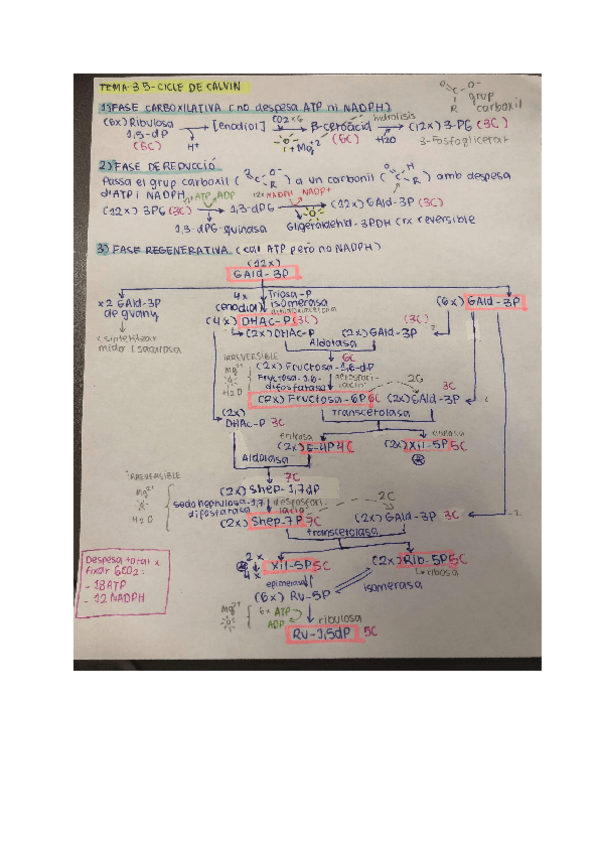 TEMA 3.5- CICLE DE CALVIN
1) FASE CARBOXILATIVA (no despesa ATP ni NADPH)
grup carboxil
(6x) Ribulosa 1,5-dP (5C) → [enodiol] CO2 x6 β-ceroàcid (6C) hidrolisis (12x) 3-PG (3C)
H+ + Mg+2 H2O 3-Fosfoglicerat
2) FASE DE REDUCCIÓ
Passa el grup carboxil ( ) a un carbonil ( ) amb despesa
d'ATP i NADPH 12x ATP ADP 12x NADPH NADP+
(12x) 3PG (3C) → 1,3-dPG → (12x) GAld-3P (3C)
1,3-dPG-quinasa Gligeraldehid-3PDH (rx reversible
3) FASE REGENERATIVA (cal ATP però no NADPH)
(12x)
GAld-3P
x2 GAld-3P de guany
4x (enodiol) Triosa-P isomerasa
(6x) GAld-3P
x sintetitzar midó i sacarosa
(4x) DHAC-P (3C) (3C)
(2x) DHAC-P (2x) GAld-3P
Aldolasa
IRREVERSIBLE 6C
(2x) Fructosa-1,6-dP
Mg2+ H2O Fructosa-1,6-difosfatasa
2C 3C
(2x) Fructosa-6P 6C (2x) GAld-3P
(2x) DHAC-P 3C Transcetolasa
eritrosa
(2x) E-4P 4C (2x) Xil-5P 5C
Aldolasa
IRREVERSIBLE 7C
(2x) Shep-1,7dP
Mg2+ H2O sedoheptulosa-1,7 difosfatasa
2C
(2x) Shep-7P 7C (2x) GAld-3P 3C
transcetolasa
Despesa total x fixar 6CO2:
- 18 ATP
- 12 NADPH
2x 4x Xil-5P 5C (2x) Rib-5P 5C
ribosa
epimerasa isomerasa
(6x) Ru-5P
Mg2+ 6x ATP ADP ribulosa
Ru-1,5dP 5C